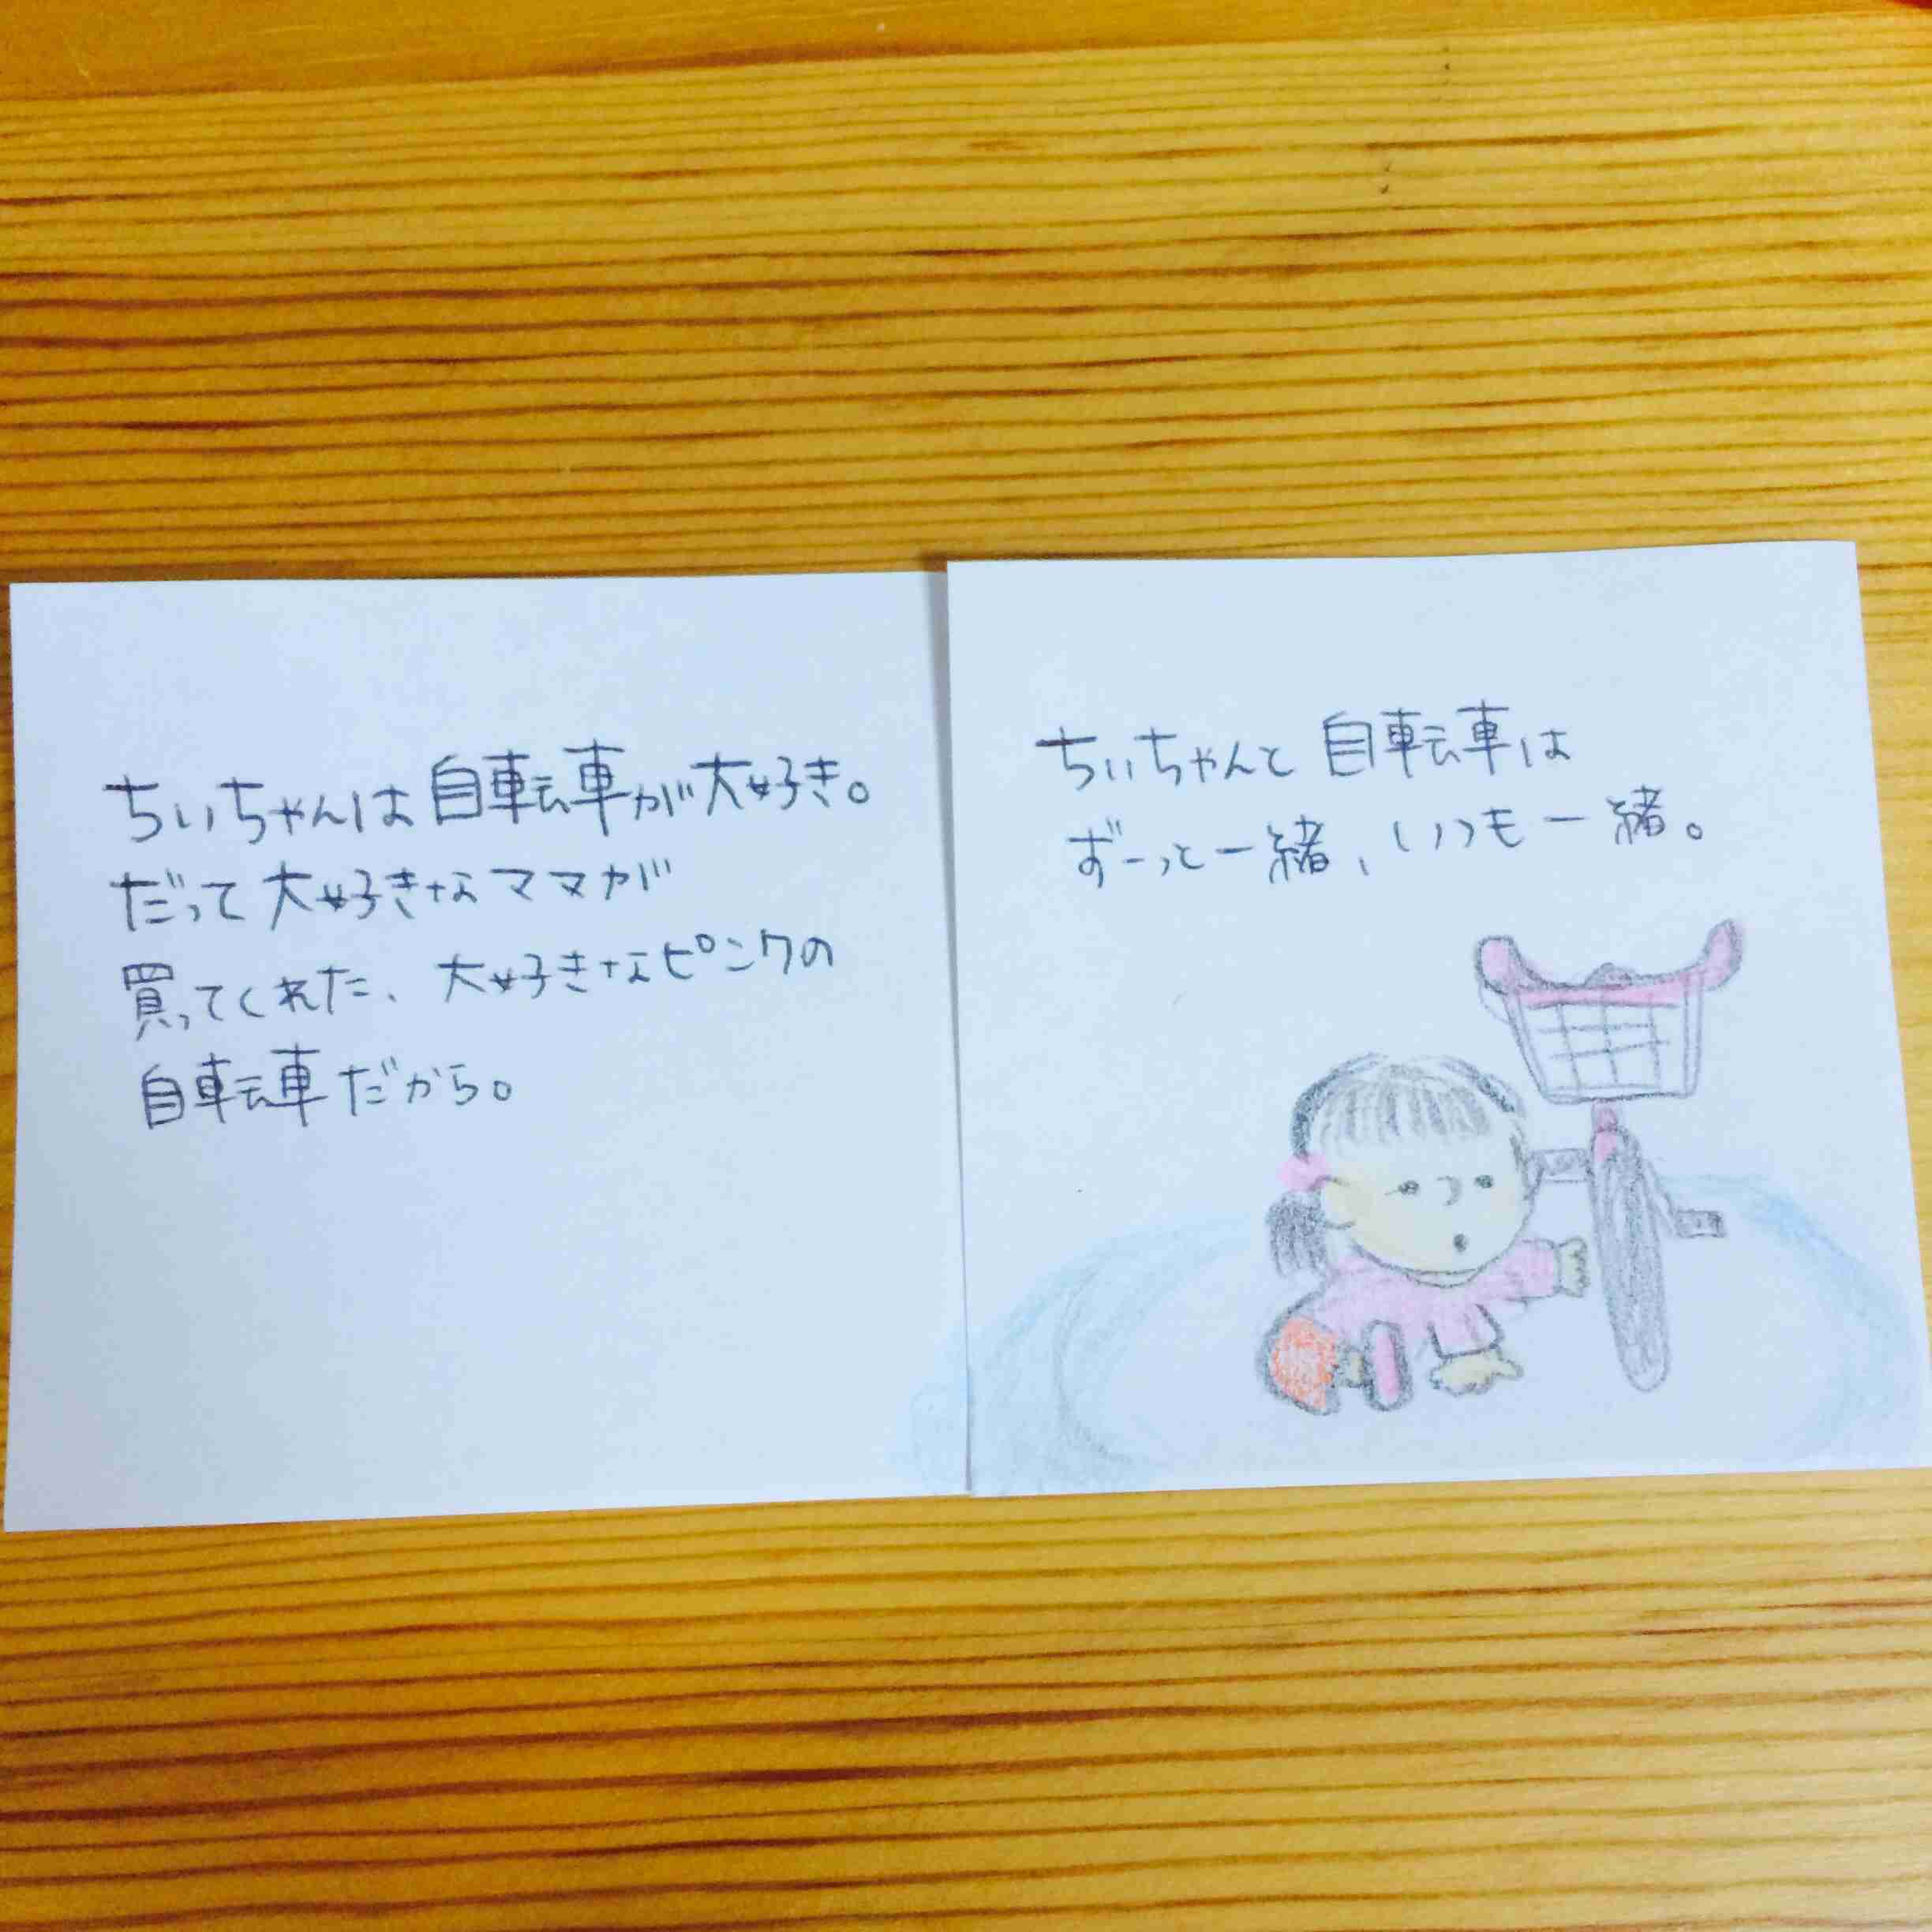 ちぃちゃんは自転車が大好き。
だって大好きなママが
買ってくれた、大好きなピンクの
自転車だから。
ちぃちゃんと自転車は
ずーっと一緒、いつも一緒。